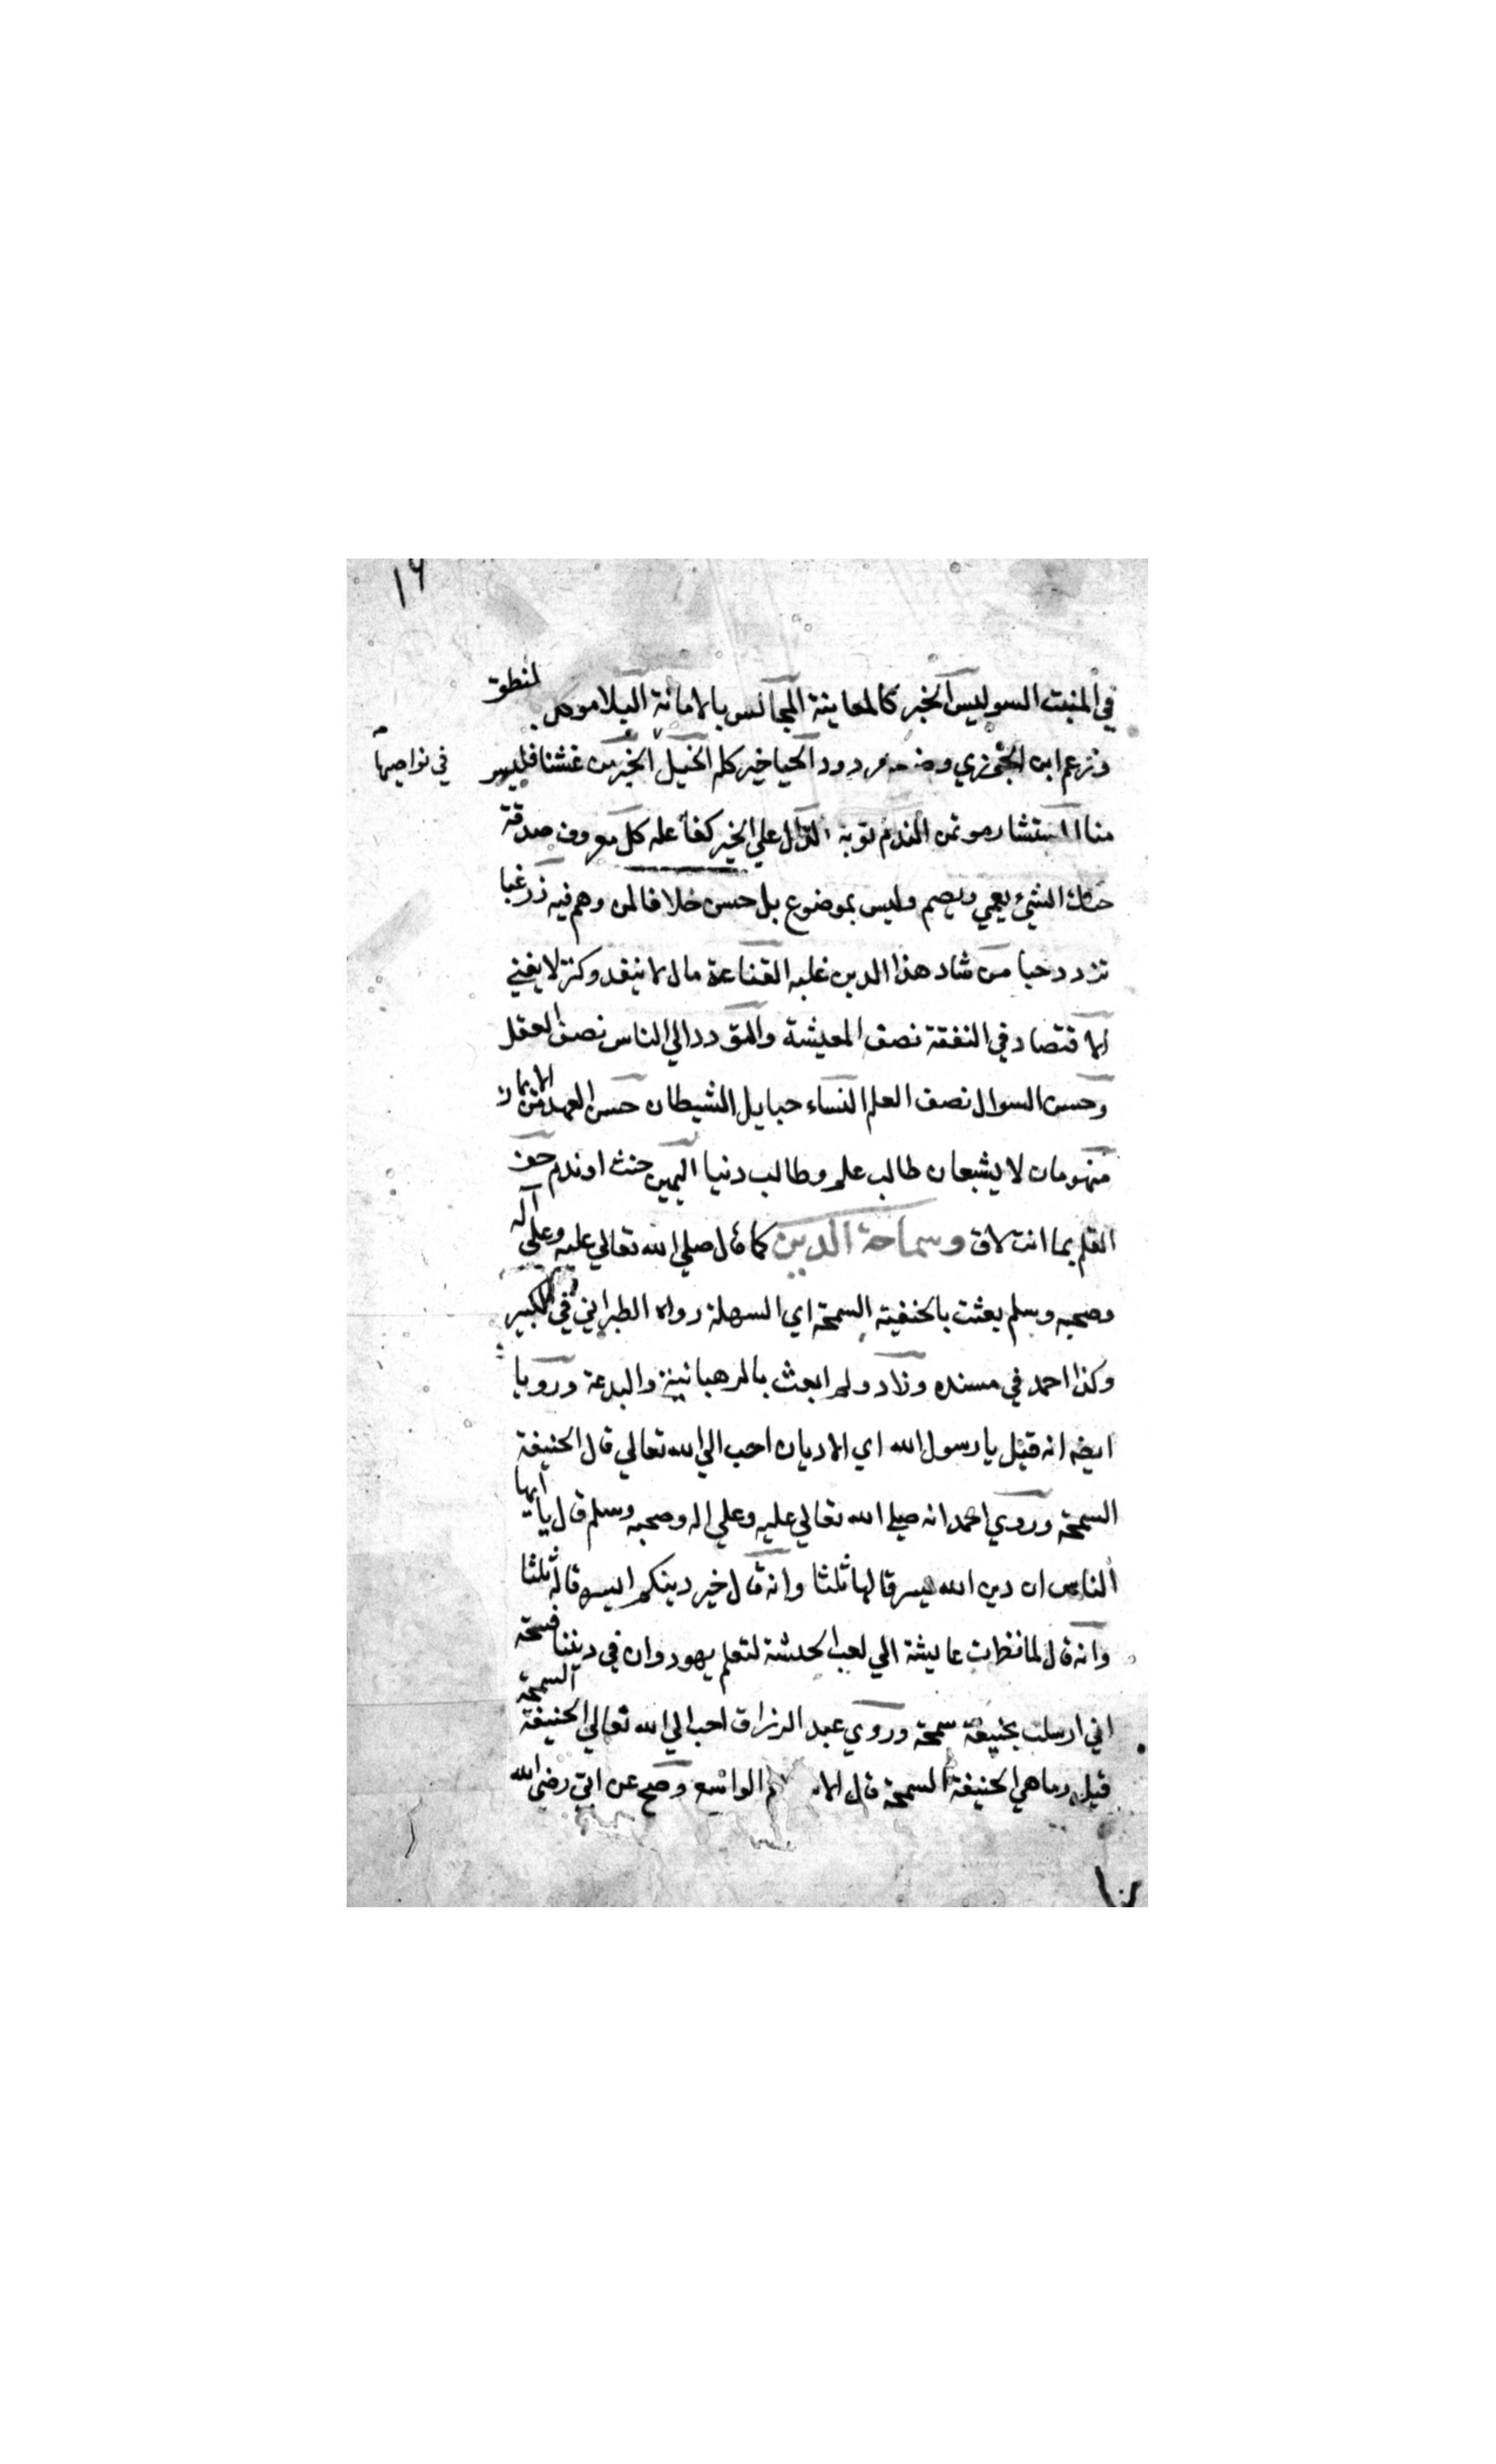 ١٦
في المنبت السو ليس الخبر كالمعاينة المجالس بالامانة البلا موكل بالمنطق
وزعم ابن الجوزي وضعه مردود الحيا خير كله الخيل الخير من غشنا فليس
في نواصيها
منا المستشار موتمن الندم توبة الدال علي الخير كفاعله كل معروف صدقة
حبك الشيء يعمي ويصم وليس بموضوع بل حسن خلافا لمن وهم فيه زر غبا
تزدد حبا من شاد هذا الدين غلبه القناعة مال لا ينفد وكنز لا يفني
الاقتصاد في النفقة نصف المعيشة والتودد الي الناس نصف العقل
وحسن السوال نصف العلم النساء حبايل الشيطان حسن العهد من الايمان
منهومان لا يشبعان طالب علم وطالب دنيا اليمين حنث او ندم جف
القلم بما انت لاق وسماحة الدين كما قال صلي الله تعالي عليه وعلي آله
وصحبه وسلم بعثت بالحنفية السمحة اي السهلة رواه الطبراني في الكبير
وكذا احمد في مسنده وزاد ولم ابعث بالرهبانية والبدعة ورويا
ايضه انه قيل يا رسول الله اي الاديان احب الي الله تعالي قال الحنيفة
السمحة وروي احمد انه صلي الله تعالي عليه وعلي اله وصحبه وسلم قال يا ايها
الناس ان دين الله يسر قالها ثلثا وانه قال خير دينكم ايسره قاله ثلثا
وانه قال لما نظرت عايشة الي لعب الحبشة لتعلم يهود وان في ديننا فسحة
اني ارسلت بحنيفة سمحة وروي عبد الرزاق احب الي الله تعالي الحنيفة السمحة
قيل وما هي الحنيفة السمحة قال الواسع وصح عن ابي رضي الله